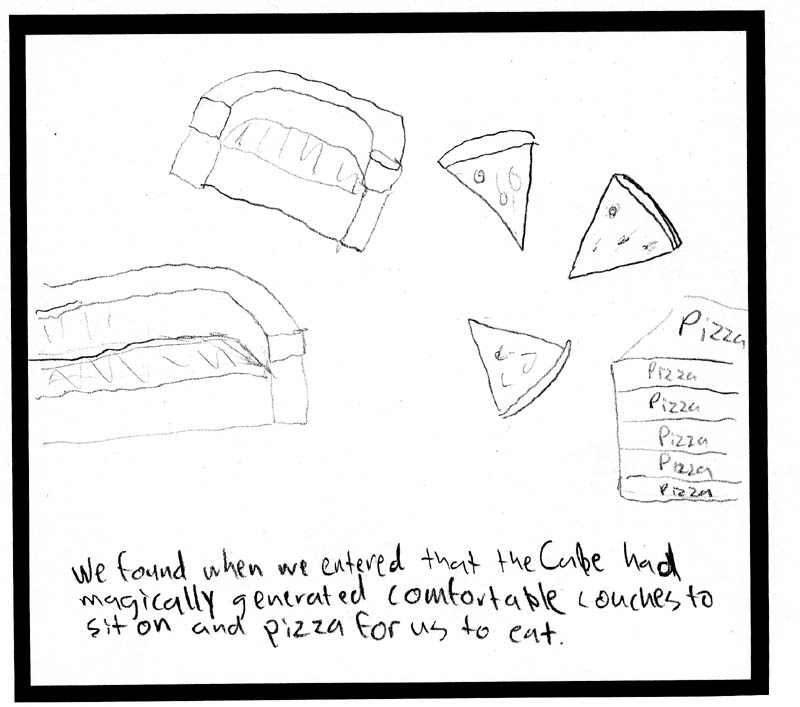 Pizza
Pizza
Pizza
Pizza
Pizza
Pizza
We found when we entered that the Cube had
magically generated comfortable couches to
sit on and pizza for us to eat.